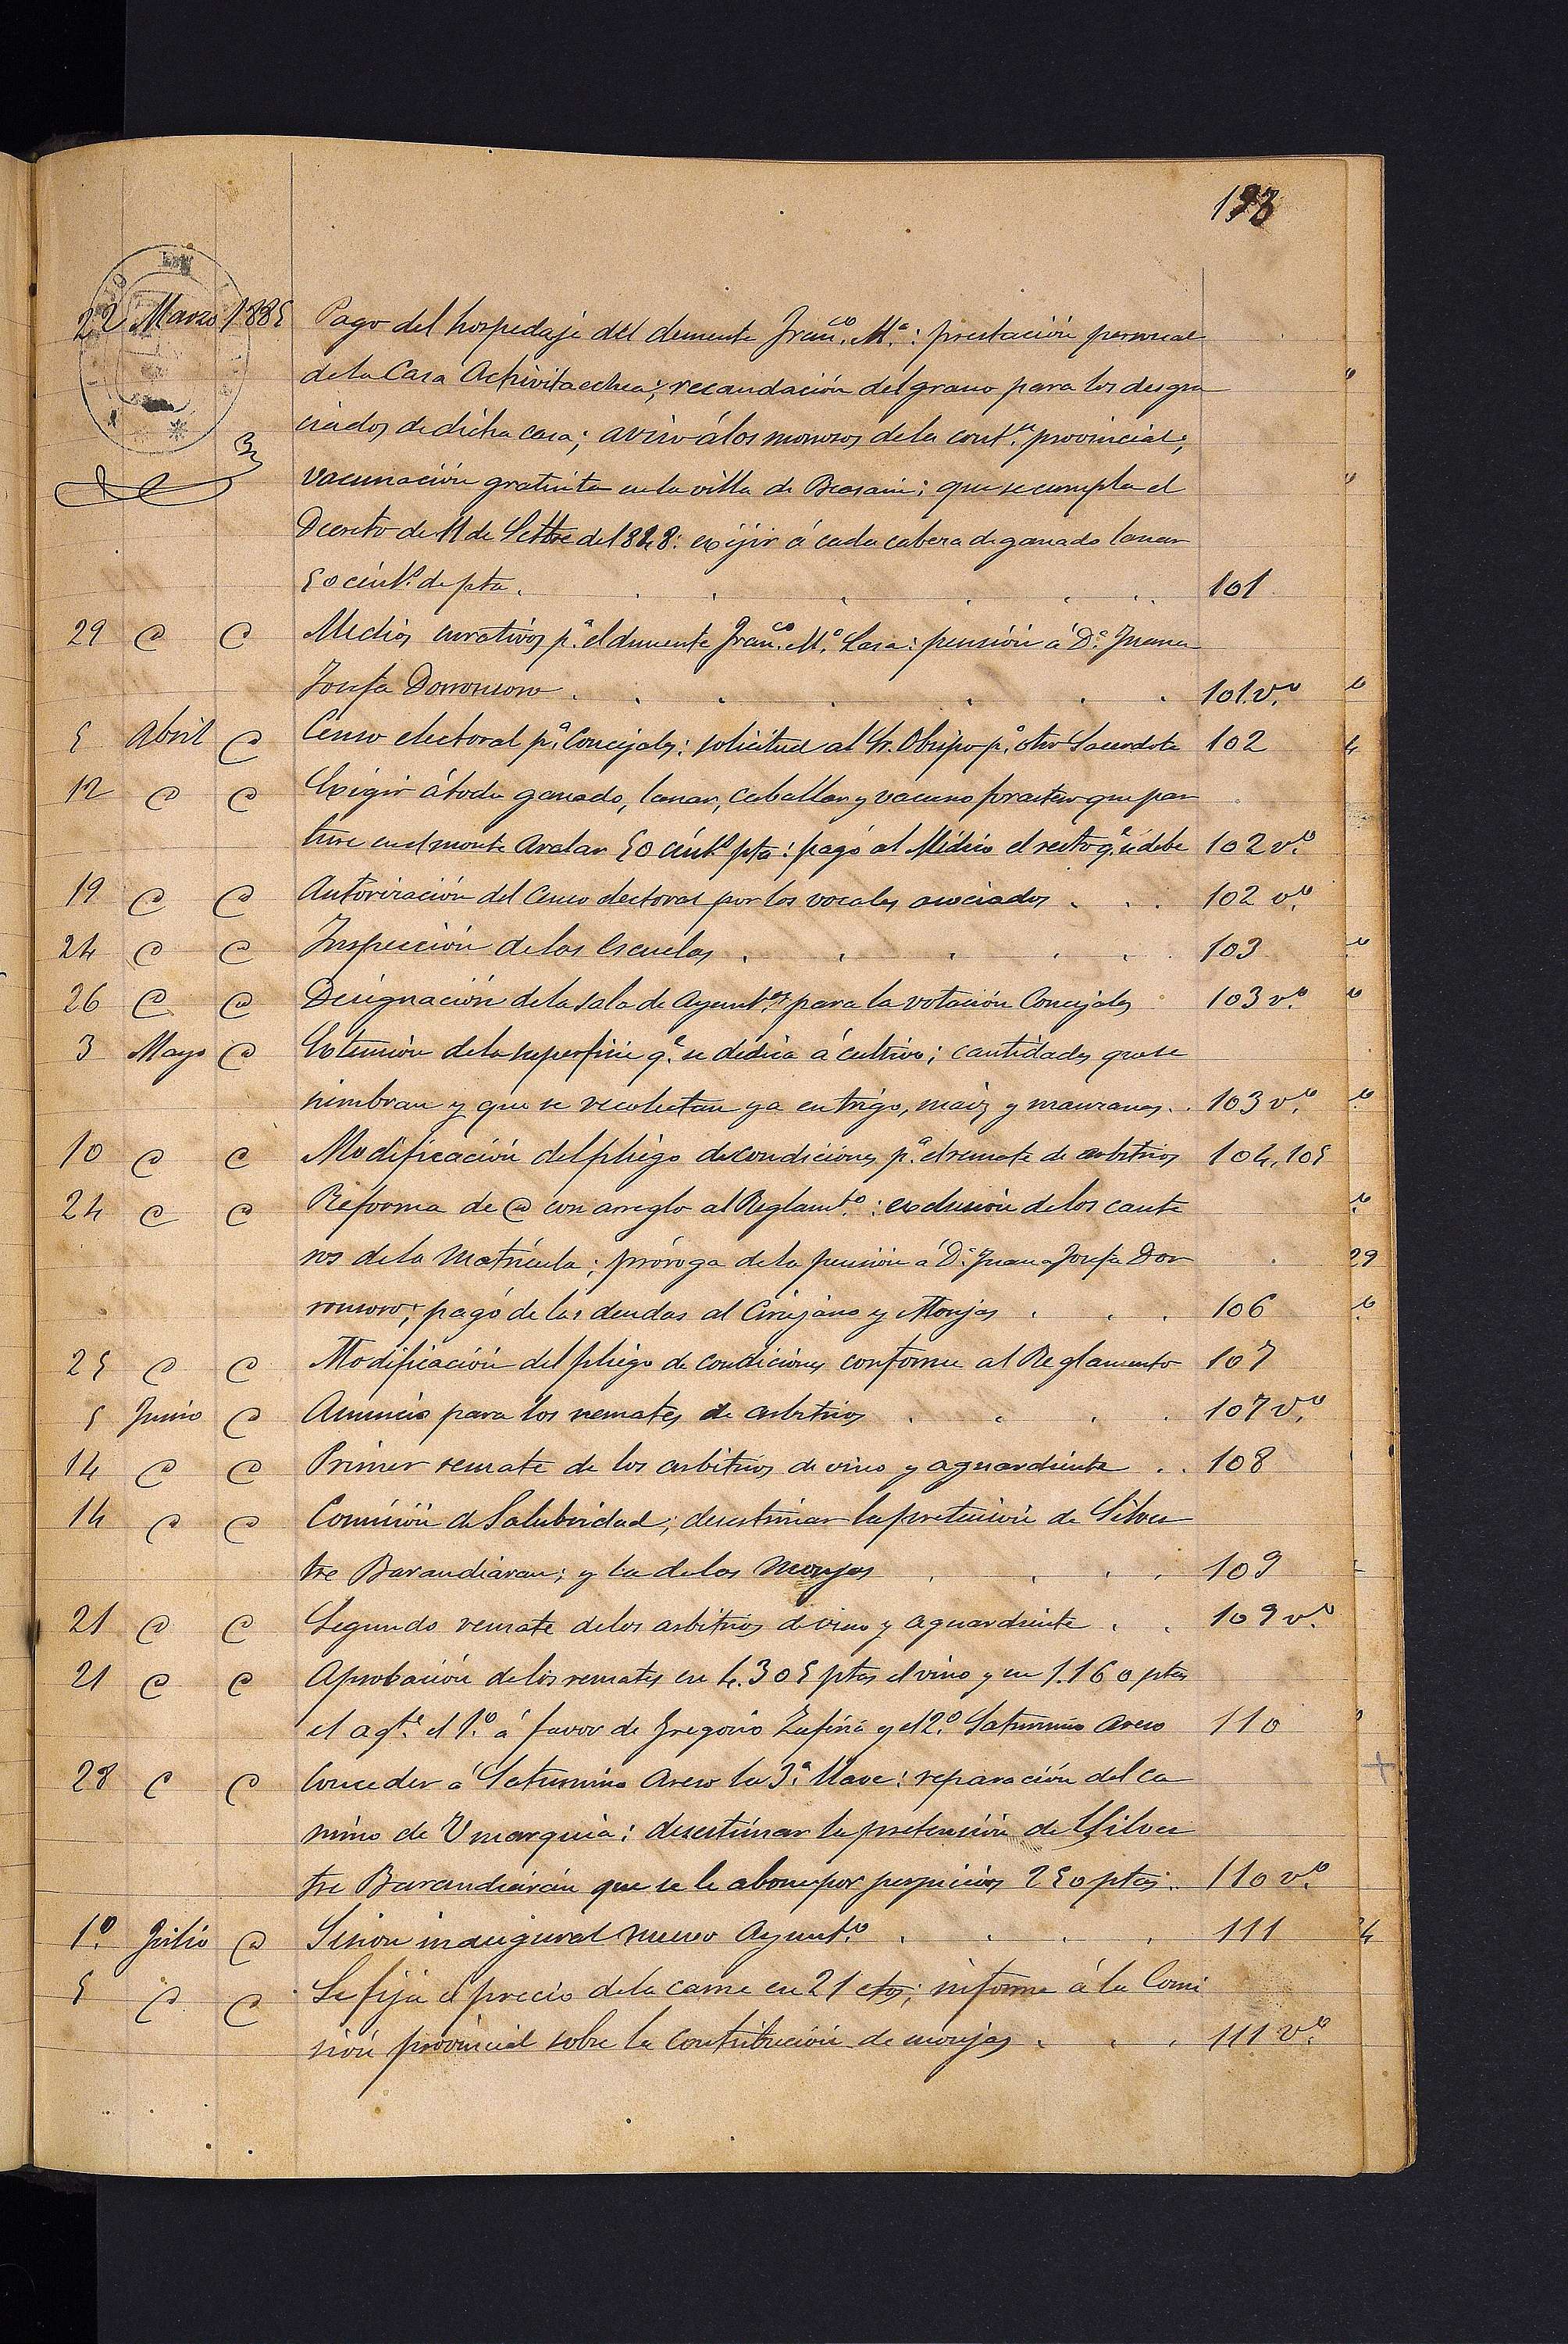 193
22 Marzo 1885 Pago del hospedaje del demente Fran.co M.ª: prestación personal
de la Casa Achivitaechea; recaudación del grano para los desgra
ciados de dicha casa; aviso á los morosos de la cont.n provincial;
vacunación gratuita en la villa de Beasain; que se cumpla el
Decreto de 11 de Settbre de 1848: exijir á cada cabeza de ganado lanar
50 cént.s de pta. 101
29 @ @ Medios curativos p.ª el demente Fran.co M.ª Lasa: pensión á D.ª Juana
Josefa Dorronsoro 101 v.to
5 Abril @ Censo electoral p.ª Concejales: solicitud al Sr. Obispo p.ª otro Sacerdote 102
12 @ @ Exigir á todo ganado, lanar, caballar y vacuno forastero que pas
ture en el monte Aralar 50 cént.s pta: pago al Médico el resto q.e se debe 102 v.to
19 @ @ Autorización del Censo electoral por los vocales asociados 102 v.to
24 @ @ Inspección de las Escuelas 103
26 @ @ Designación de la sala de Ayunt.to para la votación Concejales 103 v.to
3 Mayo @ Extensión de la superficie q.e se dedica á cultivo; cantidades que se
siembran y que se recolectan ya en trigo, maiz y manzanas 103 v.to
10 @ @ Modificación del pliego de condiciones p.ª el remate de arbitrios 104, 105
24 @ @ Reforma de @ con arreglo al Reglamt.o: exclusión de los cante
ros de la Matrícula; próroga de la pensión á D.ª Juana Josefa Dor
ronsoro; pago de las deudas al Cirujano y Monjas 106
25 @ @ Modificación del pliego de condiciones conforme al Reglamento 107
5 Junio @ Anuncio para los remates de arbitrios 107 v.to
14 @ @ Primer remate de los arbitrios de vino y aguardiente 108
14 @ @ Comisión de Salubridad; desestimar la pretensión de Silves
tre Barandiaran; y la de las Monjas 109
21 @ @ Segundo remate de los arbitrios de vino y aguardiente 109 v.to
21 @ @ Aprobación de los remates en 4.305 ptas el vino y en 1.160 ptas
el ag.te el 1.º á favor de Gregorio Zufiria y el 2.º Saturnino Areso 110
28 @ @ Conceder á Saturnino Areso la 3.ª llave: reparación del ca
mino de Umarquia: desestimar la pretensión de Silves
tre Barandiarán que se le abone por perjuicios 250 ptas 110 v.to
1.º Julio @ Sesión inaugural nuevo Ayunt.to 111
5 @ @ Se fija el precio de la carne en 21 ctos; informe á la Comi
sión provincial sobre la contribución de monjas 111 v.to